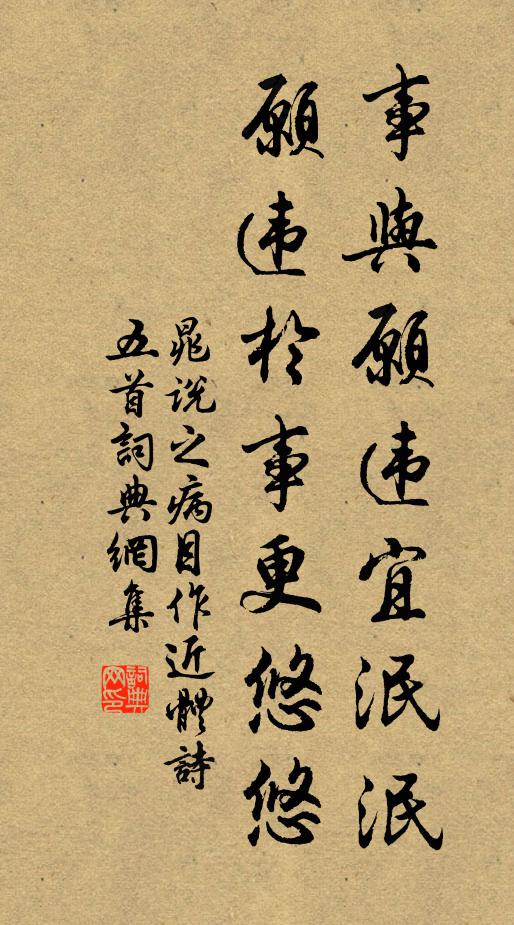 事與願違宜泯泯
願違於事更悠悠
晁說之病目作近體詩
五首詞典網集
詞典
网印